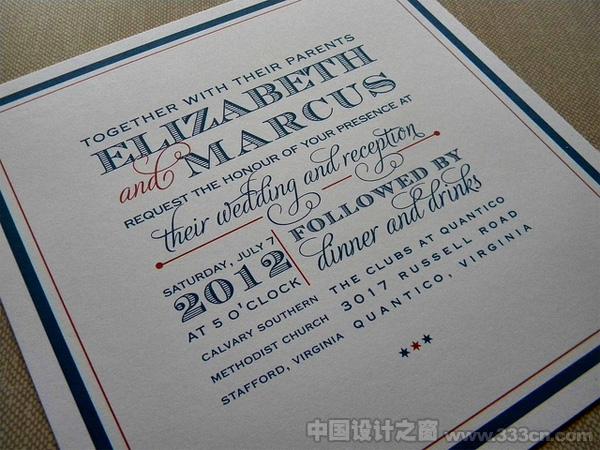 TOGETHER WITH THEIR PARENTS
ELIZABETH
and MARCUS
REQUEST THE HONOUR OF YOUR PRESENCE AT
their wedding and reception
SATURDAY, JULY 7
2012
AT 5 O'CLOCK
CALVARY SOUTHERN
METHODIST CHURCH
STAFFORD, VIRGINIA
FOLLOWED BY
dinner and drinks
THE CLUBS AT QUANTICO
3017 RUSSELL ROAD
QUANTICO, VIRGINIA
中国设计之窗 www.333cn.com